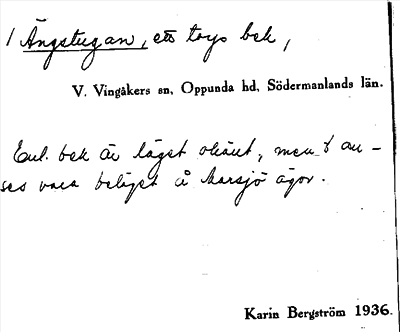 1 Ängstugan, ett torps bek,
V. Vingåkers sn, Oppunda hd, Södermanlands län.
Enl. bek är läget okänt, men t an-
ses vara beläget å Marsjö ägor.
Karin Bergström 1936.